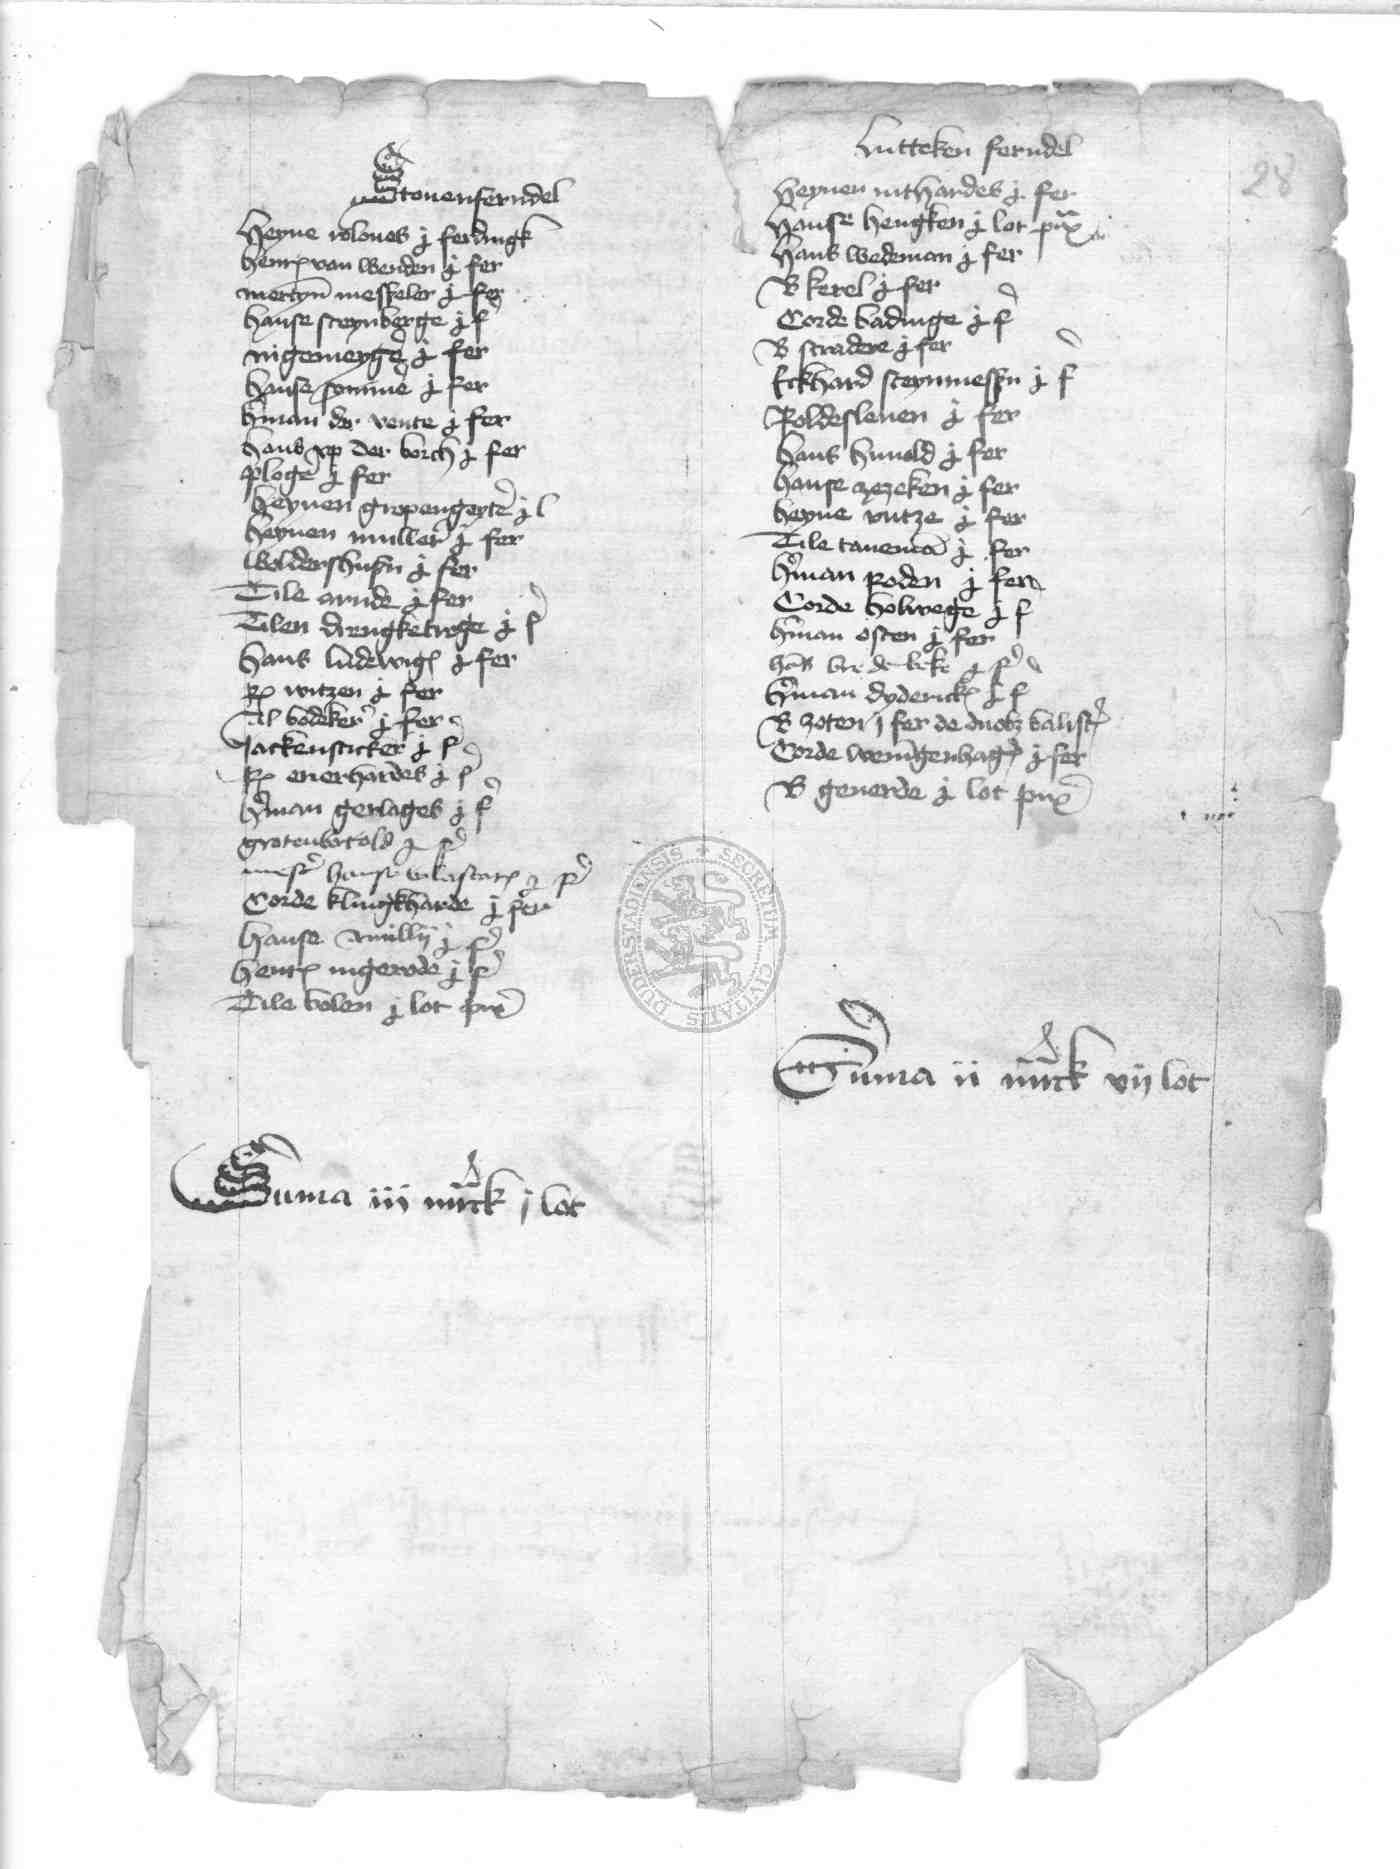 Stouenferndel
Heyne roloues j ferdingk
henr van werden j fer
mertyn mesßeler j fer
hanse steynberge j f
nigemeyger j fer
hanse somme j fer
hman der vente j fer
hans vp der borch j fer
ploge j fer
heynen gropengeyter j l
heynen muller j fer
woldershusen j fer
Tile arnde j fer
Tilen drengketroge j f
hans ludewig j fer
witzen j fer
Til bodeker j fer
Jackensticker j f
euerhardes j f
hman gerlages j f
grotenbertold j f
mester hanse j f
Corde klingkharde j fer
hanse j f
henr nigerode j f
Tile bolen j lot pur
Suma iii mrck j lot
Lutteken ferndel
28
heynen nithardes j fer
Hanse hengken j lot pur
hans wedeman j fer
B kerel j fer
Corde badinge j f
B stradere j fer
Eckhard steynmesßn j f
Poldesleuen j fer
hans hunold j fer
hanse zezeken j fer
heyne rutze j fer
Tile j fer
hman roden j fer
Corde holwege j f
hman osten j fer
hans bredebeke j f
hman dyderick j f
B zoten j fer de duobz balist
Corde weningenhag j fer
B geuerde j lot pur
Suma ii mrck vij lot
SECRETUM CIVITATIS DUDERSTADIENSIS